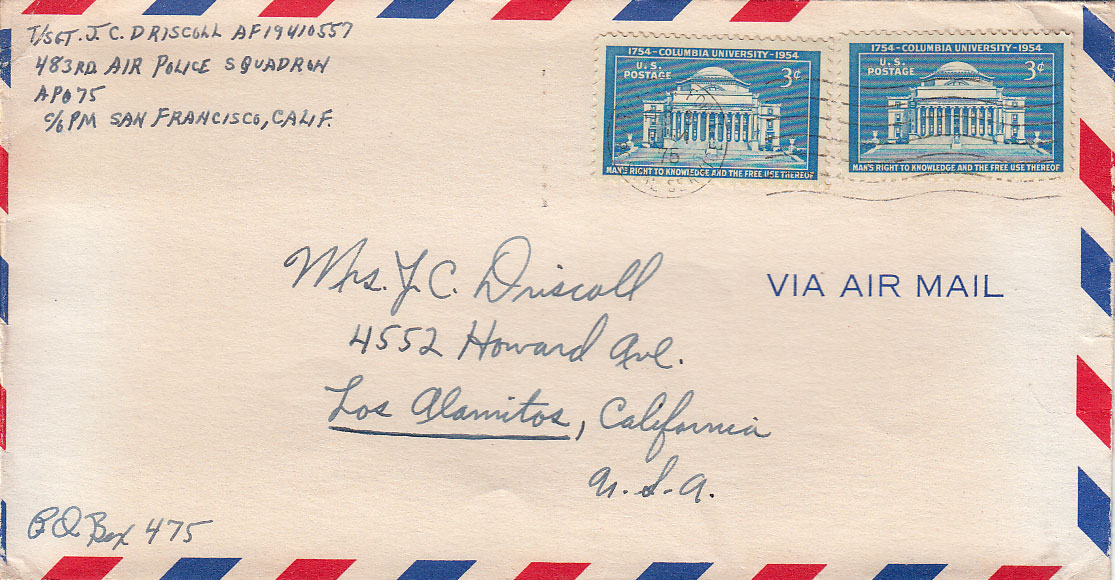 T/SGT. J. C. DRISCOLL AF19410557
483RD AIR POLICE SQUADRON
APO 75
C/O PM SAN FRANCISCO, CALIF.
1754-COLUMBIA UNIVERSITY-1954
U.S. POSTAGE 3¢
MAN'S RIGHT TO KNOWLEDGE AND THE FREE USE THEREOF
1754-COLUMBIA UNIVERSITY-1954
U.S. POSTAGE 3¢
MAN'S RIGHT TO KNOWLEDGE AND THE FREE USE THEREOF
75
VIA AIR MAIL
Mrs. J. C. Driscoll
4552 Howard Ave.
Los Alamitos, California
U. S. A.
P.O. Box 475